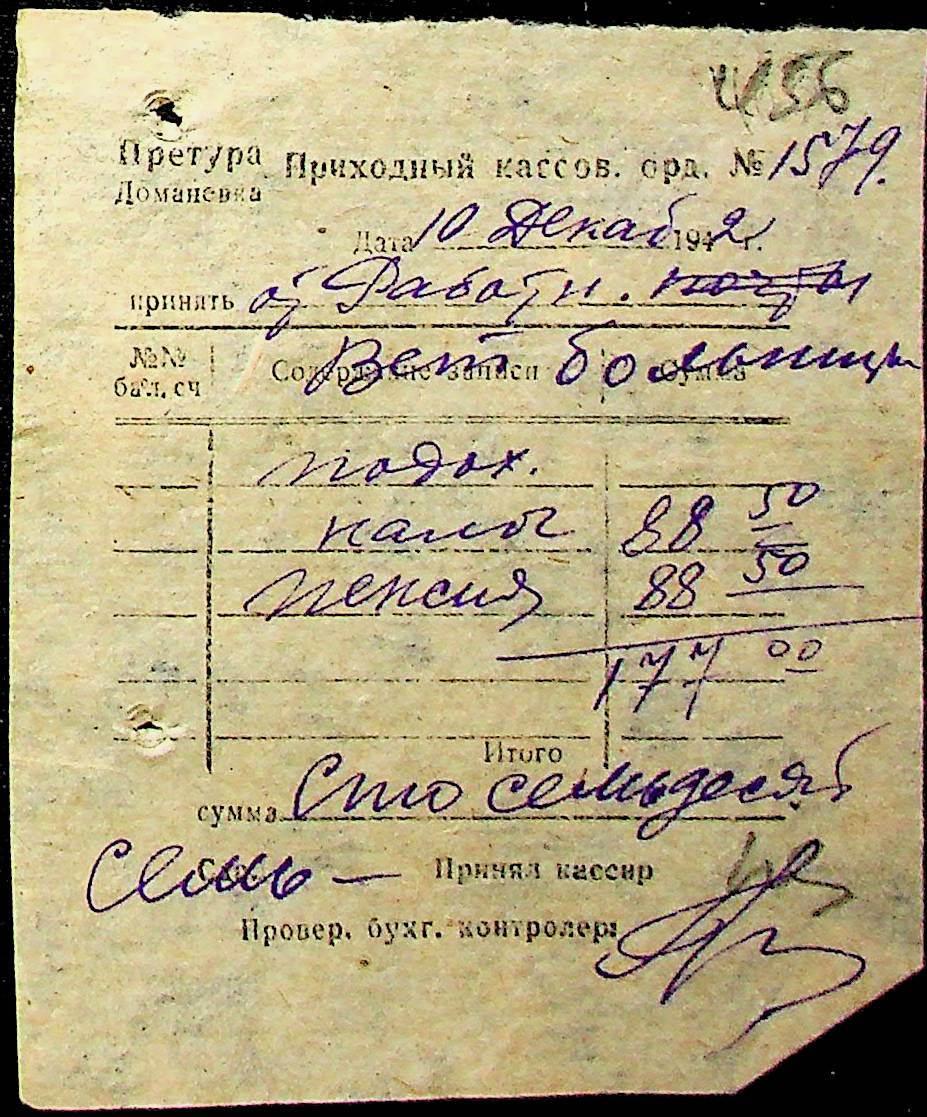 4156
Претура Приходный кассов. орд. № 1579.
Доманевка
Дата 10 Декаб 1942 г.
принять от Работн. почты
Вет больницы
№№ бал. сч Содержание записи Сумма
подох.
налог 88 50
пенсия 88 50
177 00
Итого
сумма Сто семьдесят
семь — Принял кассир
Провер. бухг. контролер: